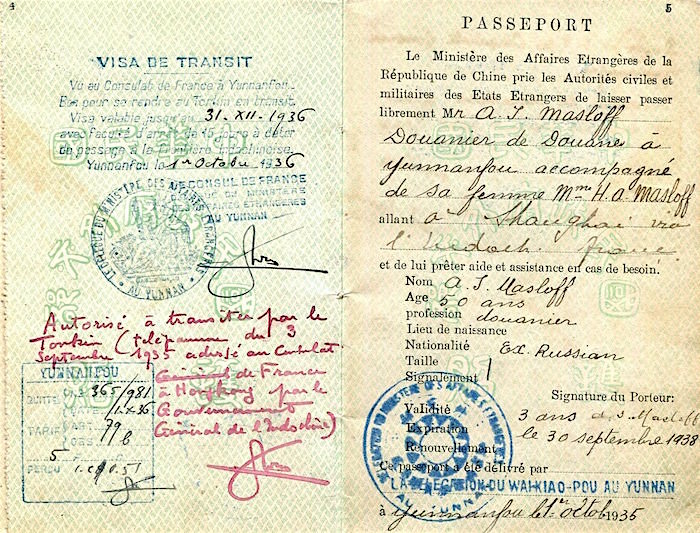 4
VISA DE TRANSIT
Vu au Consulat de France à Yunnanfou.
Bon pour se rendre au Tonkin en transit.
Visa valable jusqu'au 31-XII-1936
avec faculté d'arrêt de 15 jours à dater
du passage à la frontière indochinoise.
Yunnanfou le 1er Octobre 1936
LE CONSUL DE FRANCE
DU MINISTERE
AFFAIRES ETRANGERES
AU YUNNAN
LE DELEGUE DU MINISTRE DES AFFAIRES ETRANGERES
AU YUNNAN
Autorisé à transiter par le
Tonkin (télégramme du 3
Septembre 1935 adressé au Consulat
Général de France
à Hongkong par le
Gouvernement
Général de l'Indochine)
YUNNANFOU
QUITTE 365/981
1.X.36
TARIF ART. 79
6
5
PERÇU
5
PASSEPORT
Le Ministère des Affaires Etrangères de la
République de Chine prie les Autorités civiles et
militaires des Etats Etrangers de laisser passer
librement Mr A. I. Masloff
Douanier de Douane à
Yunnanfou accompagné
de sa femme Mme H. A. Masloff
allant à Shanghai via
l'Indoch. france
et de lui prêter aide et assistance en cas de besoin.
Nom A. I. Masloff
Age 50 ans
profession douanier
Lieu de naissance
Nationalité Ex. Russian
Taille
Signalement
Signature du Porteur:
Validité 3 ans A. I. Masloff
Expiration le 30 septembre 1938
Renouvellement
Ce passeport a été délivré par
LA DELEGATION DU WAI-KIAO-POU AU YUNNAN
à Yunnanfou le 1er Octob 1935
DELEGATION DU MINISTERE DES AFFAIRES ETRANGERES
AU YUNNAN